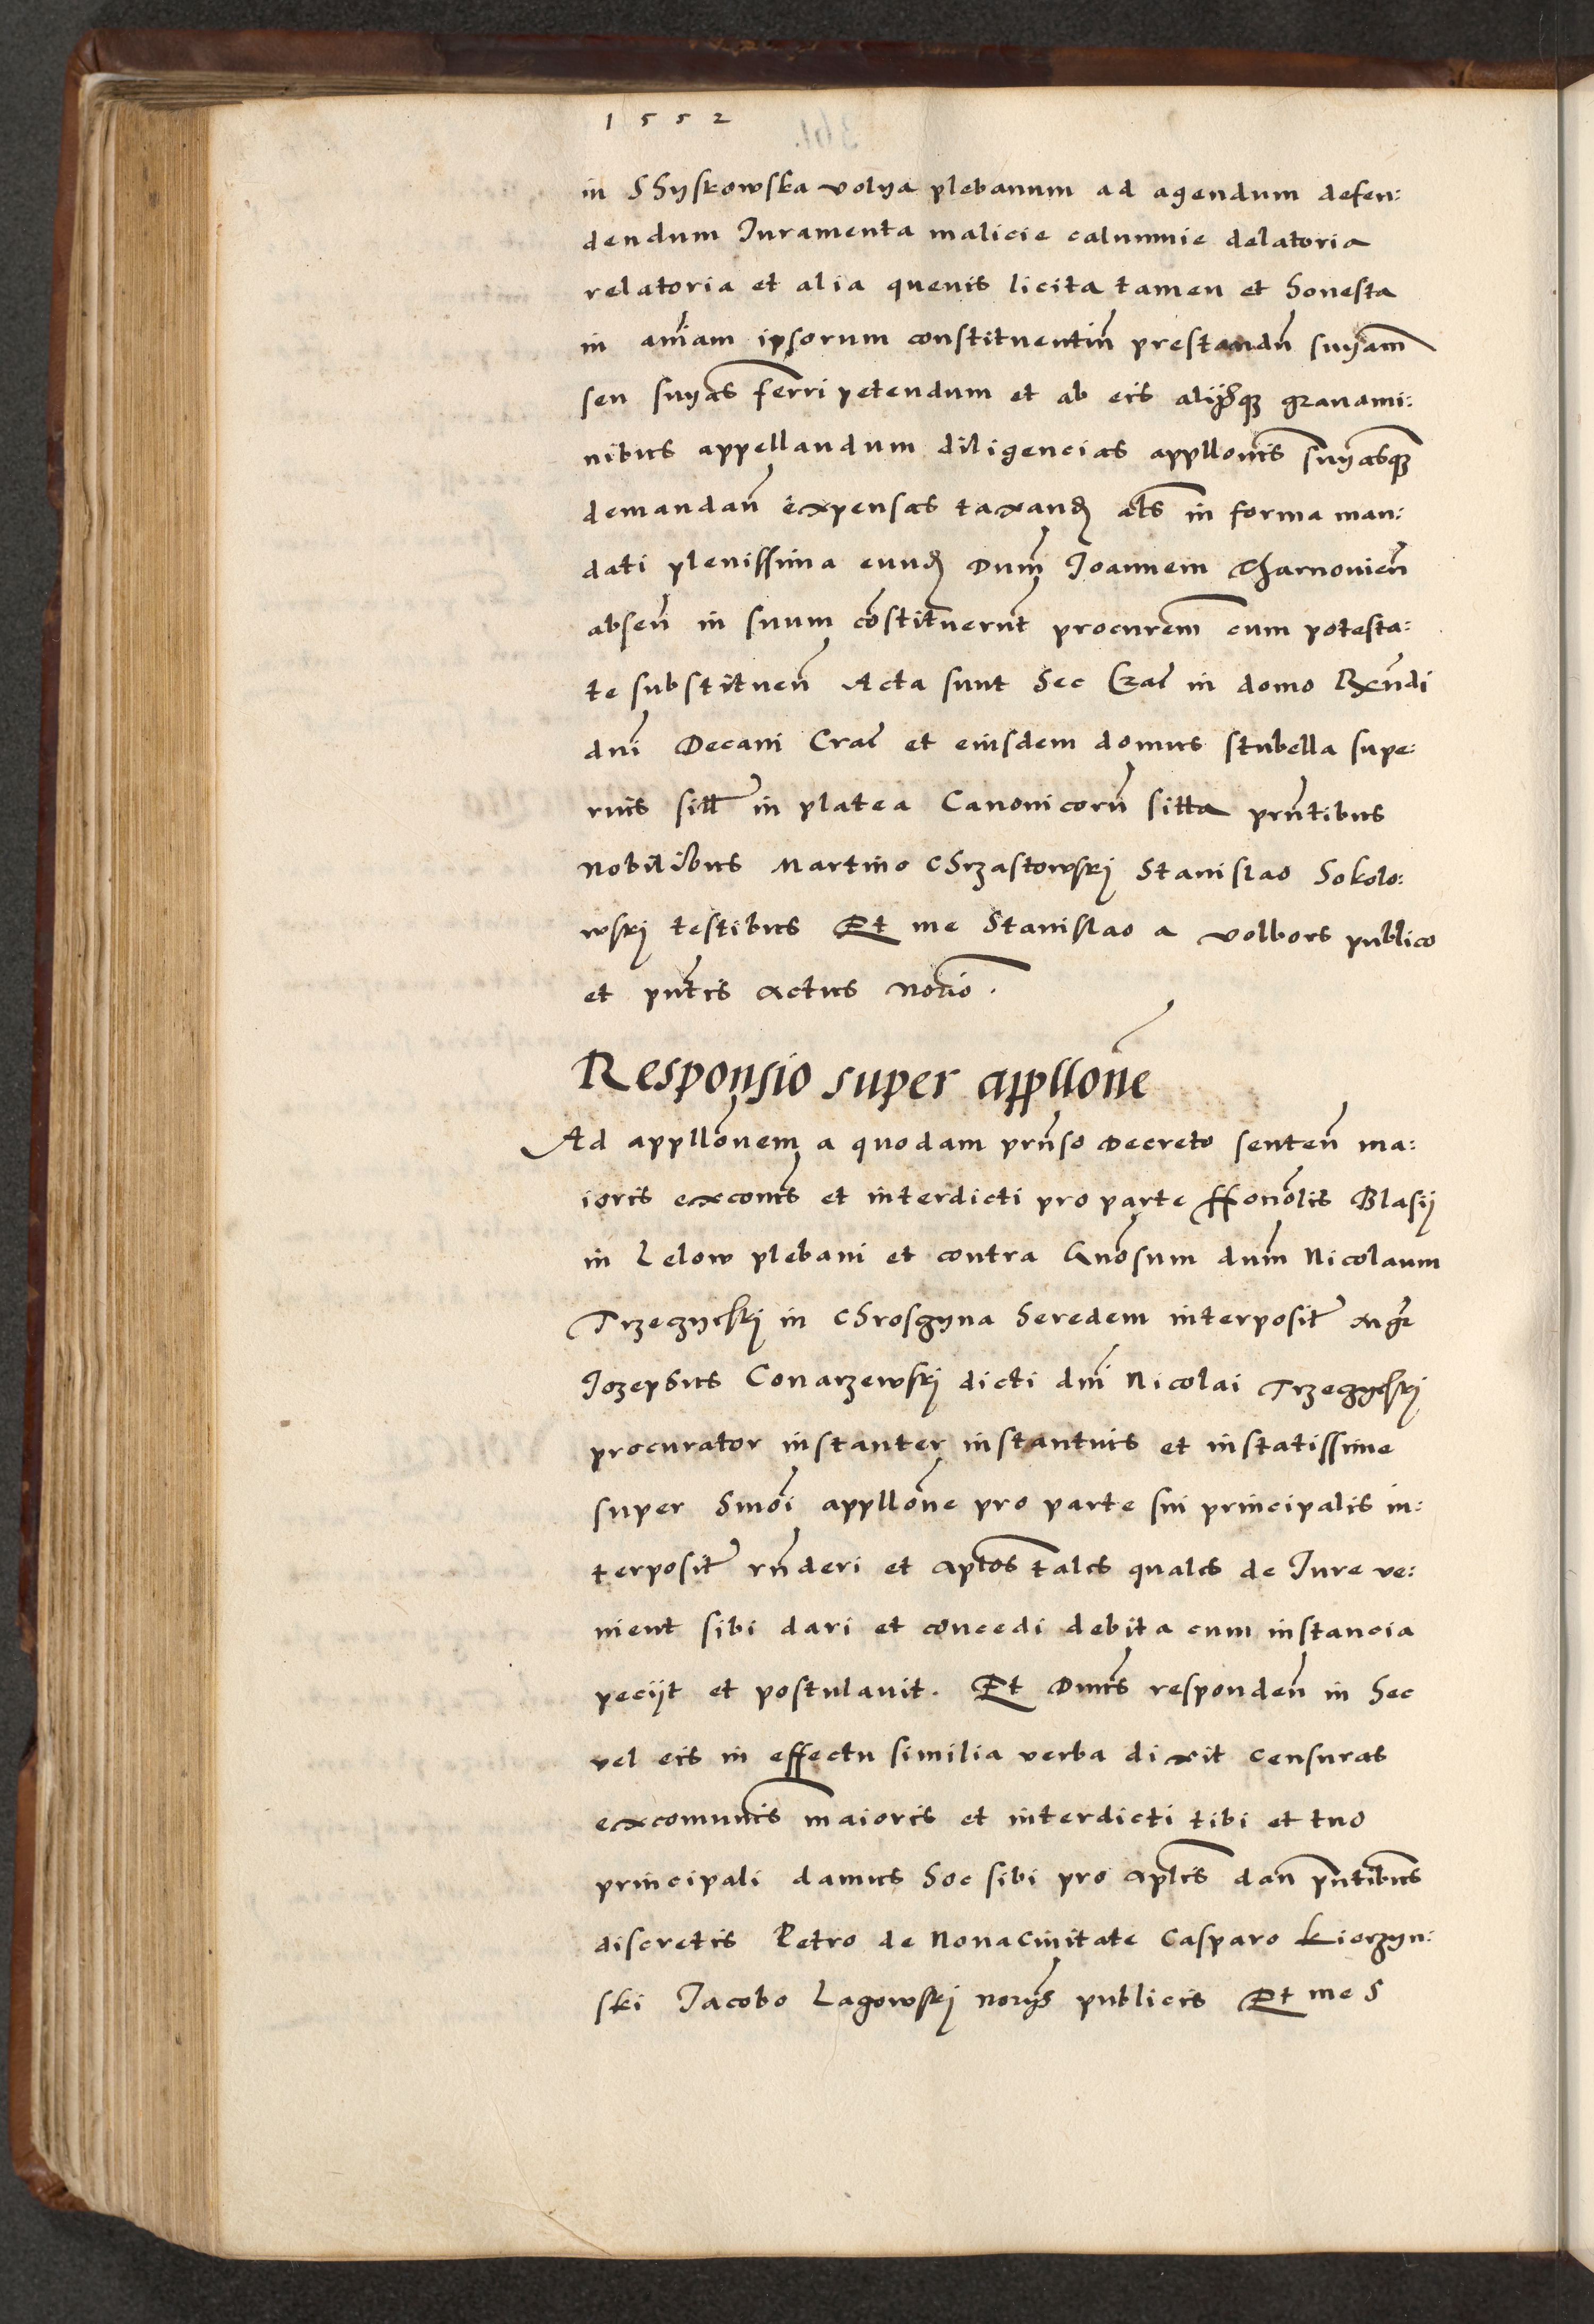 1552
in Shyskowska volya plebanum ad agendum defen:
dendum Iuramenta malicie calumnie delatoria
relatoria et alia quevis licita tamen et honesta
in aīam ipsorum constituentiū prestandū snyam̄
seu snyas ferri petendum et ab eis alijsq3 gravami:
nibus appellandum diligencias appllonis snyasq3
demandan̄ expensas taxand als in forma man:
dati plenissima eund Dnm̄ Ioannem Tharnovien̄
absen̄ in suum cōstituerūt procurem̄ cum potesta:
te substituen̄ Acta sunt hec Cra͞e in domo Rx̄ndi
dnī Decani Cra͞e et eiusdem domus stubella supe:
rius sitt in platea Canonicorū sitta prn̄tibus
nobilibus Martino Chrzastowskij Stanislao Sokolo:
wskij testibus Et me Stanislao a Volbors publico
et pn̄tis actus no͞rio.
Responsio super appllōne
Ad appllōnem a quodam prn̄so Decreto senten̄ ma:
ioris excōis et interdicti pro parte Honōlis Blasij
in Lelow plebani et contra Gnōsum dnm̄ Nicolaum
Trzeczyeskij in Chrosczyna heredem interposit Mgr
Iozephus Conarzewskij dicti dnī Nicolai Trzeczyeskij
procurator instanter instantius et instatissime
super hmōi appllōne pro parte sui principalis in:
terposit rn̄deri et aptos tales quales de Iure ve:
nient sibi dari et concedi debita cum instancia
pecijt et postulavit. Et Dnus responden̄ in hec
vel eis in effectu similia verba dixit censuras
excomunis maioris et interdicti tibi et tuo
principali damus hoc sibi pro aplis dan̄ pn̄tibus
discretis Petro de Nova Civitate Casparo Kiorzyn:
ski Iacobo Lagowskij norijs publicis Et me S